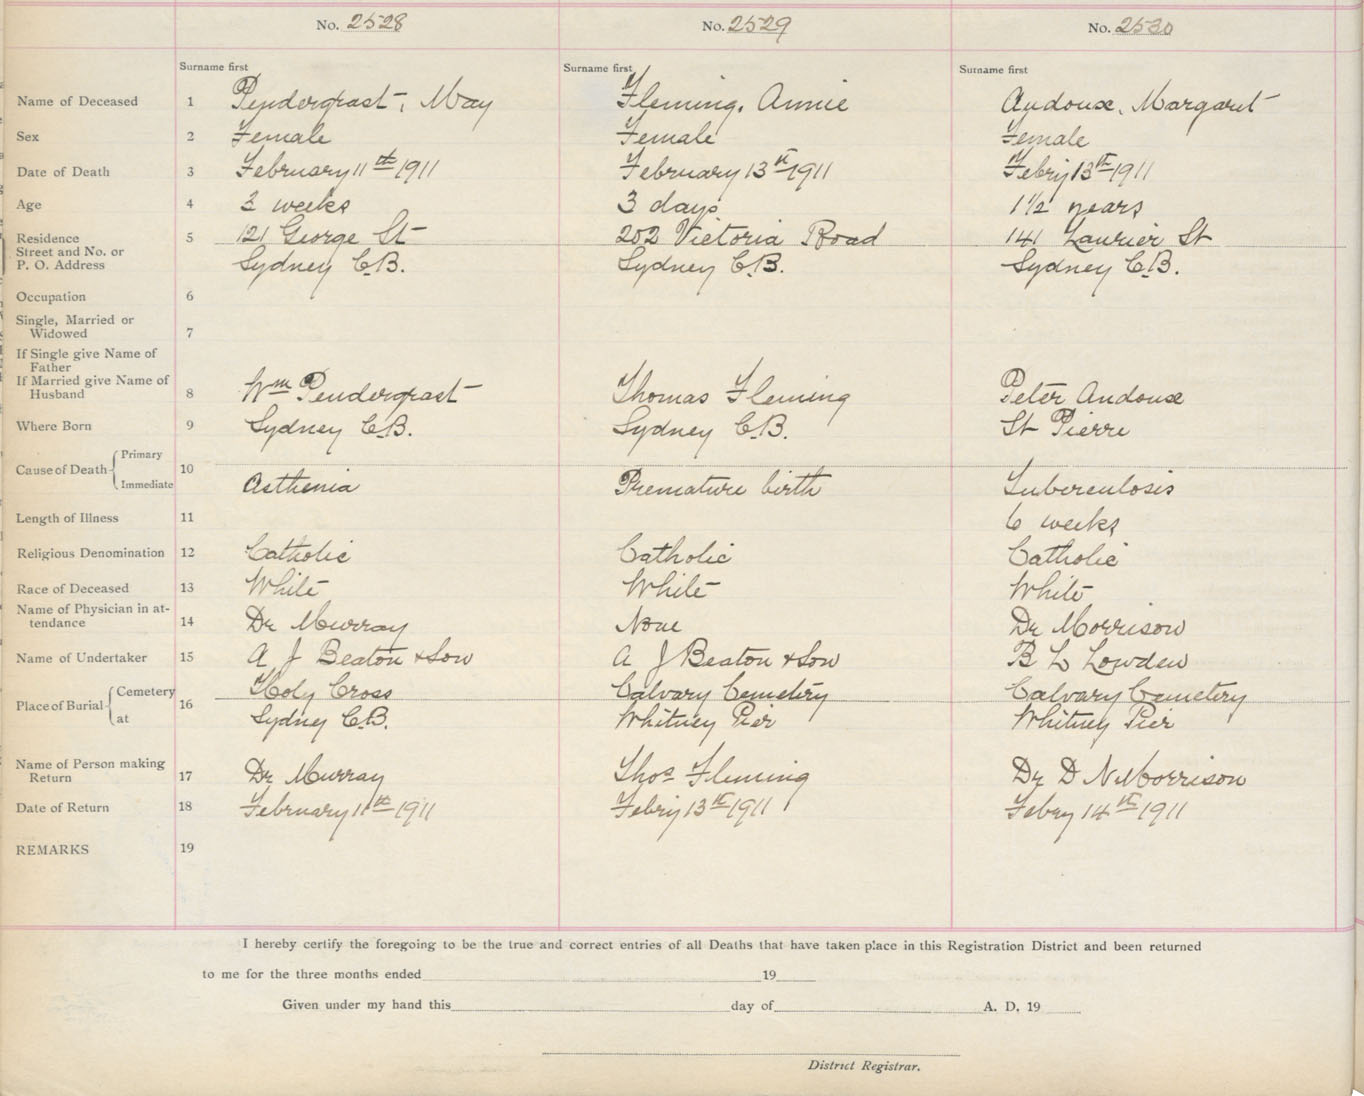 No. 2528 No. 2529 No. 2530
Surname first Surname first Surname first
Name of Deceased 1 Pendergrast, May Fleming, Annie Audoux, Margaret
Sex 2 Female Female Female
Date of Death 3 February 11th 1911 February 13th 1911 Febry 13th 1911
Age 4 3 weeks 3 days 1 1/2 years
Residence 5 121 George St 202 Victoria Road 141 Laurier St
Street and No. or
P. O. Address Sydney C.B. Sydney C.B. Sydney C.B.
Occupation 6
Single, Married or
Widowed 7
If Single give Name of
Father
If Married give Name of
Husband 8 Wm Pendergrast Thomas Fleming Peter Audoux
Where Born 9 Sydney C.B. Sydney C.B. St Pierre
Cause of Death Primary 10
Immediate Asthenia Premature birth Tuberculosis
Length of Illness 11 6 weeks
Religious Denomination 12 Catholic Catholic Catholic
Race of Deceased 13 White White White
Name of Physician in at-
tendance 14 Dr Murray None Dr Morrison
Name of Undertaker 15 A J Beaton & Son A J Beaton & Son B L Lowden
Place of Burial Cemetery 16 Holy Cross Calvary Cemetery Calvary Cemetery
at Sydney C.B. Whitney Pier Whitney Pier
Name of Person making
Return 17 Dr Murray Thos Fleming Dr D N Morrison
Date of Return 18 February 11th 1911 Febry 13th 1911 Febry 14th 1911
REMARKS 19
I hereby certify the foregoing to be the true and correct entries of all Deaths that have taken place in this Registration District and been returned
to me for the three months ended 19
Given under my hand this day of A. D. 19
District Registrar.